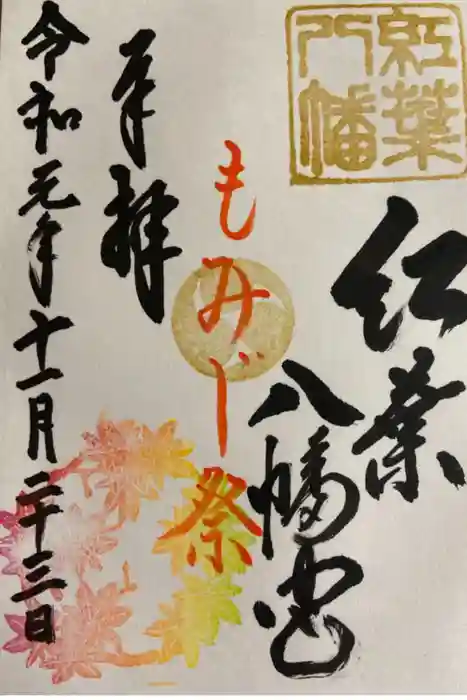 紅葉八幡
紅葉
八幡宮
もみじ祭
奉拝
令和元年十一月二十三日